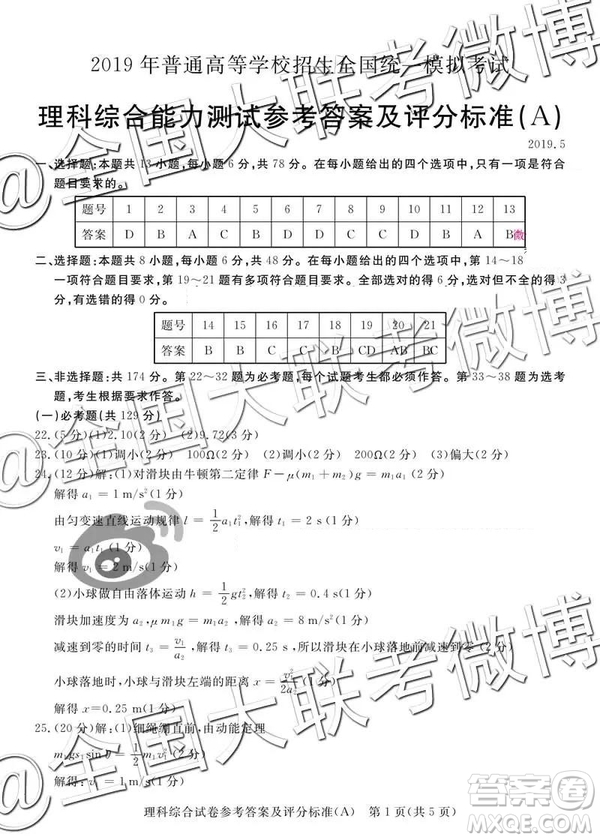 2019 年普通高等学校招生全国统一模拟考试
理科综合能力测试参考答案及评分标准(A)
2019.5
一、选择题:本题共 13 小题,每小题 6 分,共 78 分。在每小题给出的四个选项中,只有一项是符合
题目要求的。
题号 1 2 3 4 5 6 7 8 9 10 11 12 13
答案 D B A C B D D C C D B A B
微
二、选择题:本题共 8 小题,每小题 6 分,共 48 分。在每小题给出的四个选项中,第 14～18
一项符合题目要求,第 19～21 题有多项符合题目要求。全部选对的得 6 分,选对但不全的得 3
分,有选错的得 0 分。
题号 14 15 16 17 18 19 20 21
答案 B B C C B CD AB BC
三、非选择题:共 174 分。第 22～32 题为必考题,每个试题考生都必须作答。第 33～38 题为选考
题,考生根据要求作答。
(一)必考题(共 129 分)
22.(5 分)(1)2.10(2 分) (2)9.72(3 分)
23.(10 分)(1)调小(2 分) 100Ω(2 分) (2)调小(2 分) 100Ω(2 分) (3)偏大(2 分)
24.(12 分)解:(1)对滑块由牛顿第二定律 F－μ(m₁＋m₂)g＝m₁a₁(2 分)
解得 a₁＝1 m/s²(1 分)
由匀变速直线运动规律 l＝1/2 a₁t₁²,解得 t₁＝2 s(1 分)
v₁＝a₁t₁(1 分)
解得 v₁＝2 m/s(1 分)
(2)小球做自由落体运动 h＝1/2 gt₂²,解得 t₂＝0.4 s(1 分)
滑块加速度为 a₂,μm₁g＝m₁a₂(1 分)
减速到零的时间 t₃＝v₁/a₂,解得 t₃＝0.25 s,所以滑块在小球落地前减速到零(2 分)
小球落地时,小球与滑块的水平距离 x＝v₁²/2a₂(1 分)
解得 x＝0.25 m(1 分)
25.(20 分)解:(1)细绳绷直前,由动能定理
解得
(1 分)
理科综合试卷参考答案及评分标准(A) 第 1 页(共 5 页)
@全国大联考微博
@全国大联考微博
@全国大联考微博
答案圈
MXQE.COM